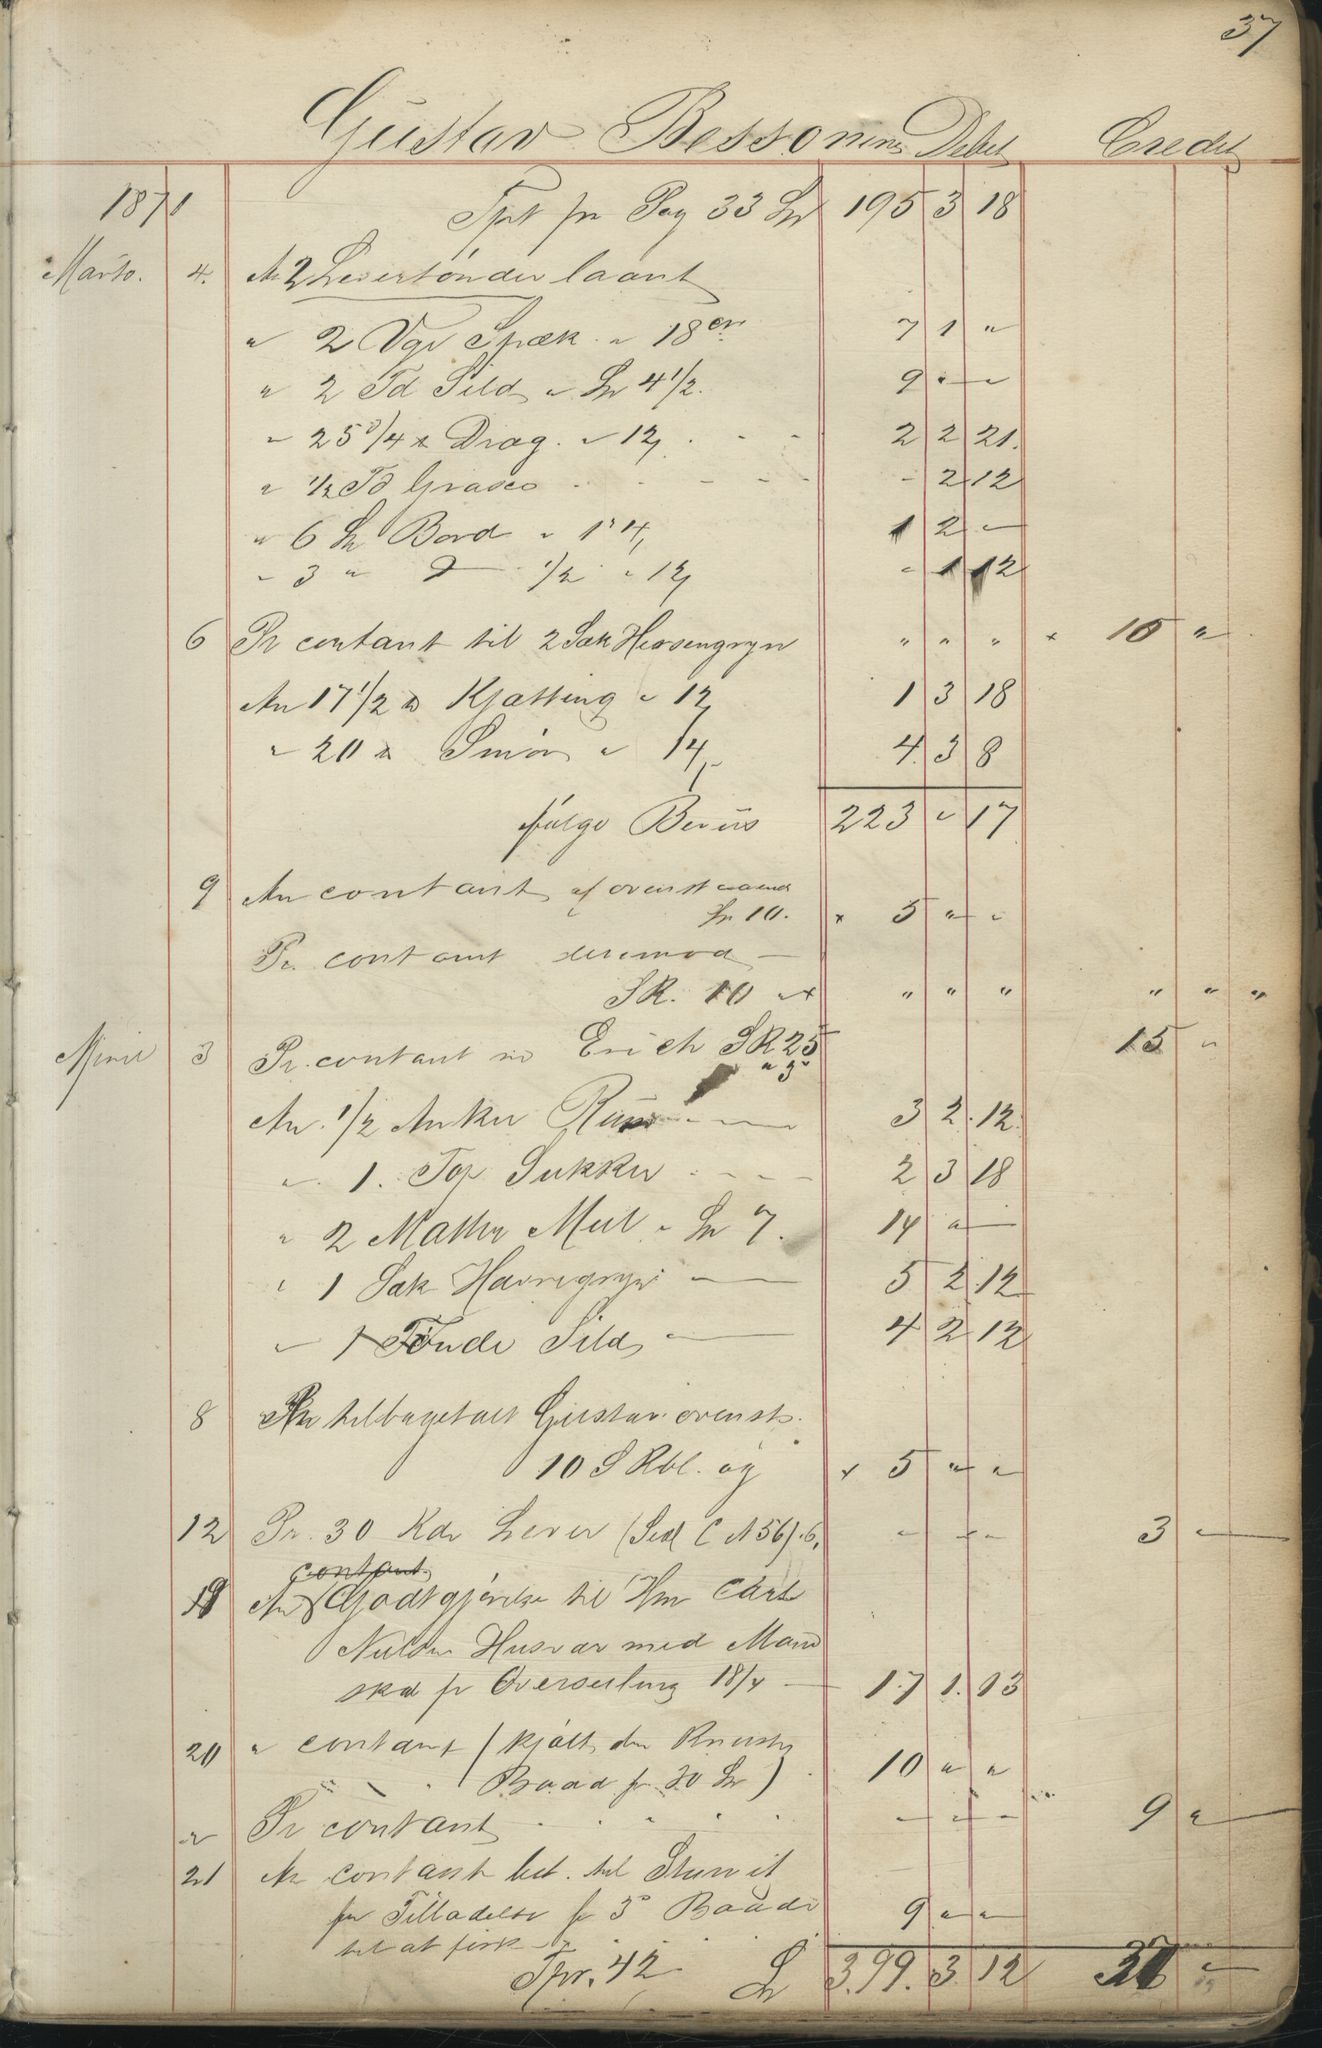 37
Gustav Bessonens Debet Credet
1871 Tprt fra Pag 33 Sp 195 3 18
Marts. 4. An 2 Levertönder laant
" 2 Vger Spæk " 18 7 1 "
" 2 Td Sild " Sp 4 1/2. 9 " "
" 25 3/4 Drag. " 12 2 2 21.
" 1/2 Td - 2 12
" 6 Bord " 4 1 2 "
" 3 " D 1/2 " 12 " 1 12
6 Pr contant til 2 Sæk Hersengryn " " " × 10 "
An 17 1/2 Kjætting " 12 1 3 18
" 20 Smör " 14 4 3 8
fölge Beviis 223 " 17
9 An contant af ovenstaaende
Sp 10. × 5 " "
Pr. contant derimod
SR. 10 " × " " " " " "
April 3 Pr. contant Erich SR 25 15 "
" 3 "
An. 1/2 Anker Rum 3 2 12
" 1. Top Sukker 2 3 18
" 2 Matter Meel " Sp 7. 14 "
" 1 Sæk Havregryn 5 2 12
" 1 Tönde Sild 4 2 12
8 An tilbagetalt Gustav ovenst.
10 S Rbl. og × 5 " "
12 Pr. 30 Kdr Lever (Sed C N 56) 6, " " " 3
contant
19 An Godtgjörelse til Hm Carl
Nielsen Husvær med Mand
skab for Overseiling 18/4 17 1. 13
20 " contant (kjöbt den
Baad for 20 Sp) 10 " "
" Pr contant " " " 9 "
21 An contant bet. til
for Tilladelse for 3 Baade 9 " "
til at fisk
Tpr. 42 Sp 399. 3 12 37 "